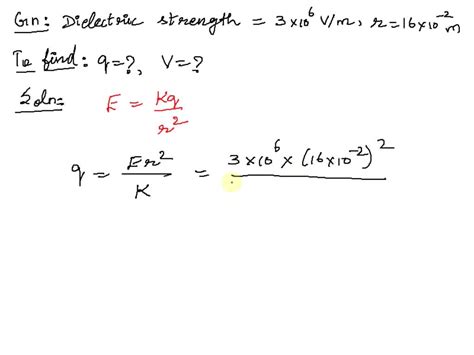 Gn: Dielectric strength = 3×10⁶ V/m, r=16×10⁻² m
To find: q=?, V=?
Soln:  E = Kq/r²
q = Er²/K = 3×10⁶×(16×10⁻²)²